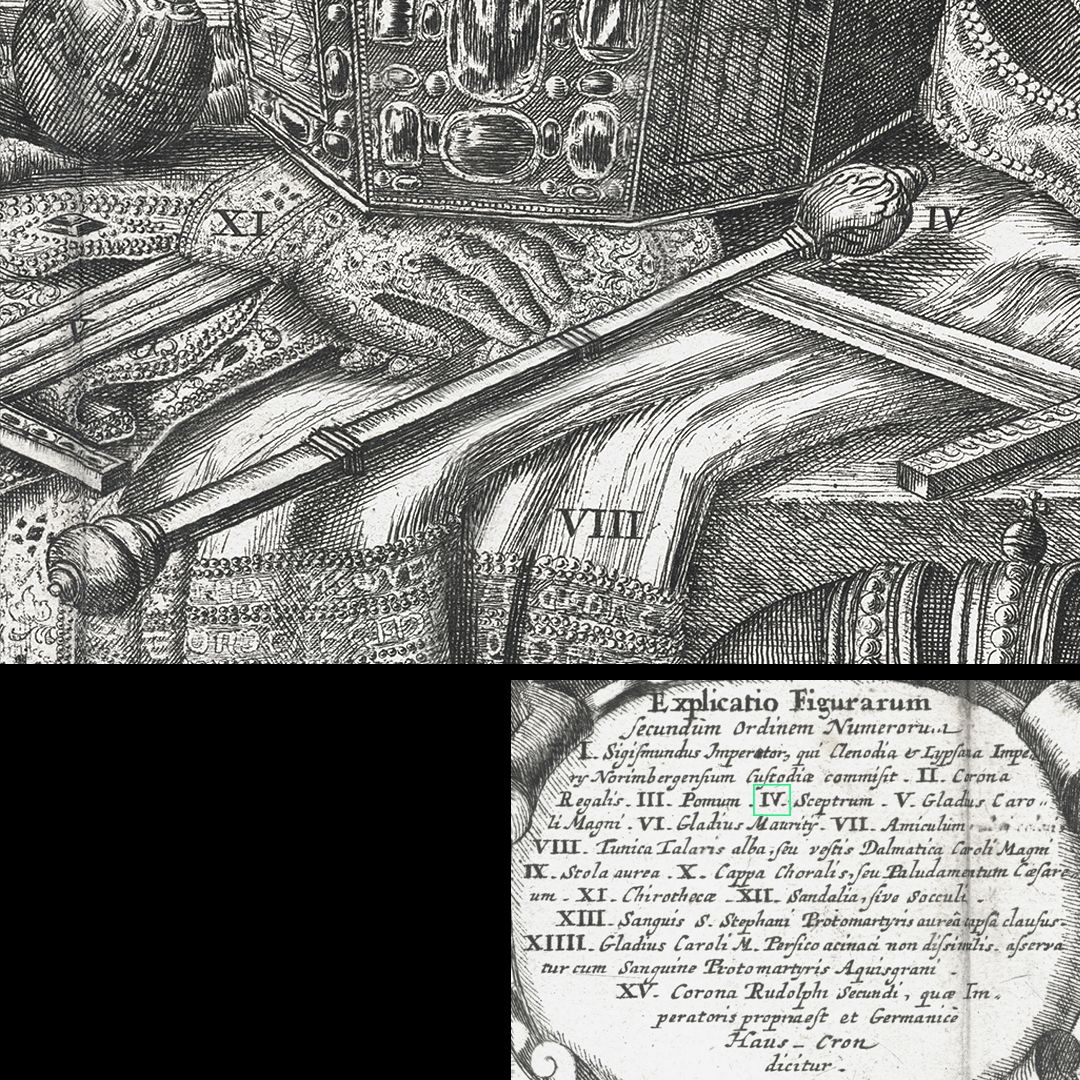 XI
IV
V
VIII
Explicatio Figurarum
secundum Ordinem Numerorum
I. Sigismundus Imperator, qui Clenodia & Lypsana Impe
ry Norimbergensium Custodiæ commisit. II. Corona
Regalis. III. Pomum. IV. Sceptrum. V. Gladus Caro
li Magni. VI. Gladius Maurity. VII. Amiculum
VIII. Tunica Talaris alba, seu vestis Dalmatica Caroli Magni
IX. Stola aurea. X. Cappa Choralis, seu Paludamentum Cæsare
um. XI. Chirothecæ XII. Sandalia, sive Socculi.
XIII. Sanguis S. Stephani Protomartyris aureâ capsâ clausus.
XIIII. Gladius Caroli M. Persico acinaci non dissimilis. asserva
tur cum Sanguine Protomartyris Aquisgrani.
XV. Corona Rudolphi Secundi, quæ Im.
peratoris propria est et Germanicè
Haus - Cron
dicitur.